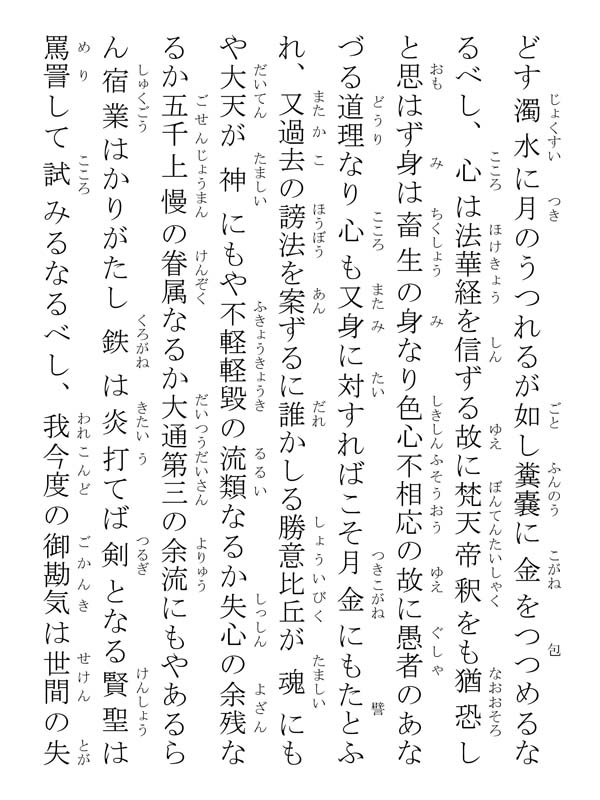 どす濁水に月のうつれるが如し糞嚢に金をつつめるな
るべし、心は法華経を信ずる故に梵天帝釈をも猶恐し
と思はず身は畜生の身なり色心不相応の故に愚者のあな
づる道理なり心も又身に対すればこそ月金にもたとふ
れ、又過去の謗法を案ずるに誰かしる勝意比丘が魂にも
や大天が神にもや不軽軽毀の流類なるか失心の余残な
るか五千上慢の眷属なるか大通第三の余流にもやあるら
ん宿業はかりがたし鉄は炎打てば剣となる賢聖は
罵詈して試みるなるべし、我今度の御勘気は世間の失